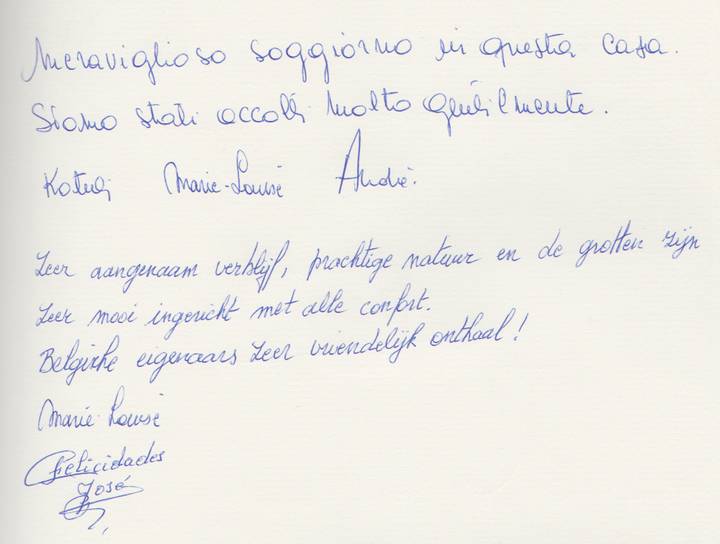 Meraviglioso soggiorno in questa casa.
Siamo stati accolti molto gentilmente.
Marie-Louise André.
Zeer aangenaam verblijf, prachtige natuur en de grotten zijn
zeer mooi ingericht met alle confort.
Belgische eigenaars zeer vriendelijk onthaal!
Marie Louise
Felicidades
José